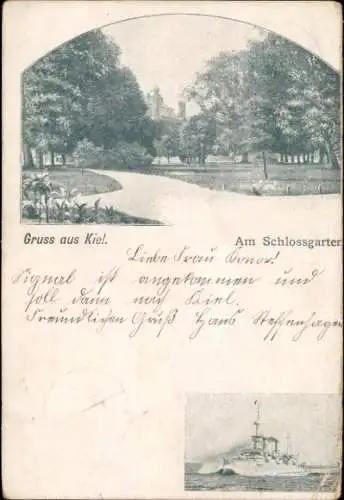 Gruss aus Kiel.
Am Schlossgarten
Liebe Frau
Signal ist angekommen und
soll dann nach Kiel.
Freundlichen Gruß Hans Steffenhagen